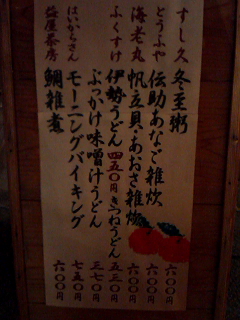 すし久 冬至粥 六〇〇円
とうふや 伝助あなご雑炊 七〇〇円
海老丸 帆立貝、あおさ雑炊 六〇〇円
ふくすけ 伊勢うどん 四五〇円 きつねうどん 五五〇円
ぶっかけ味噌汁うどん 三七〇円
はいからさん モーニングバイキング 七五〇円
益屋茶房 鯛雑煮 六〇〇円